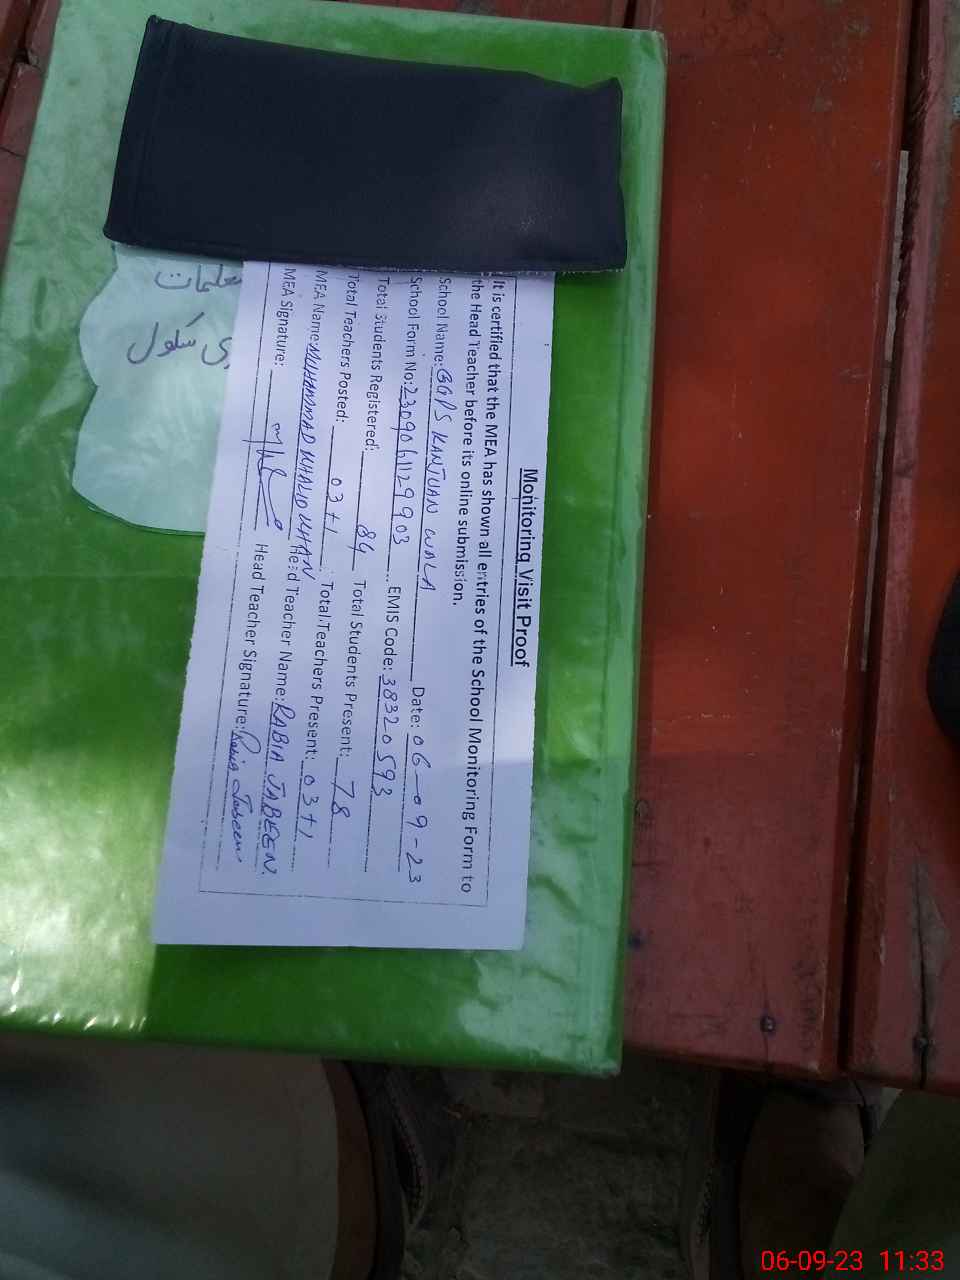 Monitoring Visit Proof
It is certified that the MEA has shown all entries of the School Monitoring Form to
the Head Teacher before its online submission.
School Name: GGPS KANJUAN WALA Date: 06-09-23
School Form No: 2309061129903 EMIS Code: 38320593
Total Students Registered: 84 Total Students Present: 78
Total Teachers Posted: 03+1 Total Teachers Present: 03+1
MEA Name: MUHAMMAD KHALID KHAN Head Teacher Name: RABIA JABEEN.
MEA Signature: Head Teacher Signature: Rabia Jabeen
سکول
06-09-23 11:33